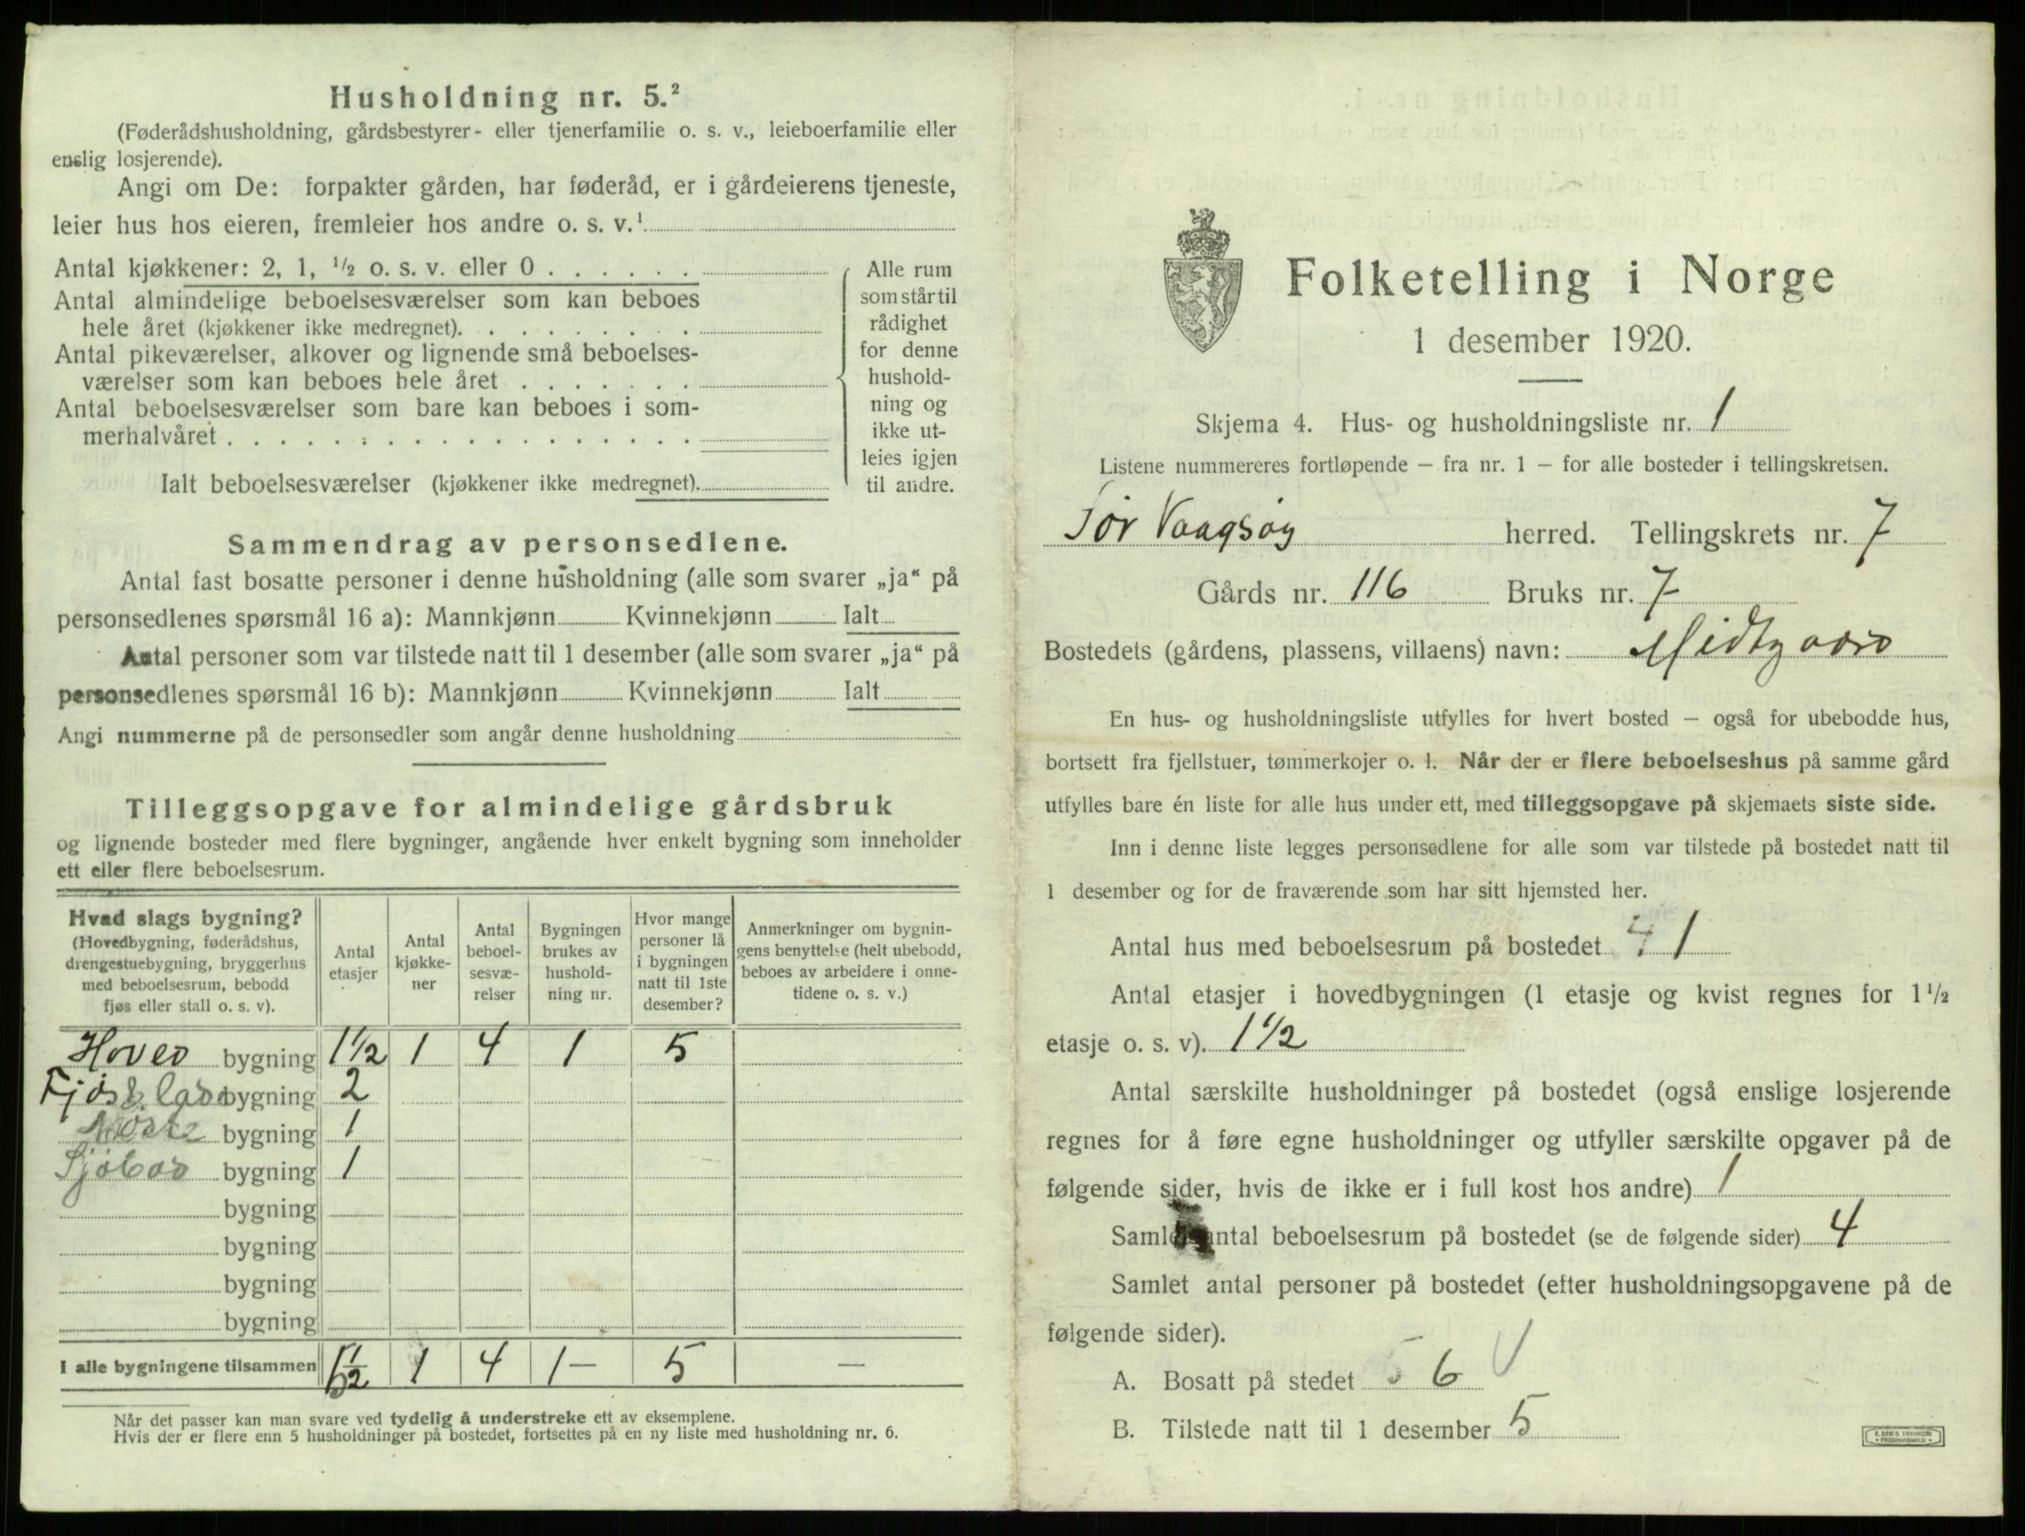 Husholdning nr. 5.²
(Føderådshusholdning, gårdsbestyrer- eller tjenerfamilie o. s. v., leieboerfamilie eller
enslig losjerende).
Angi om De: forpakter gården, har føderåd, er i gårdeierens tjeneste,
leier hus hos eieren, fremleier hos andre o. s. v.¹
Antal kjøkkener: 2, 1, ½ o. s. v. eller 0 . . . . . .
Antal almindelige beboelsesværelser som kan beboes
hele året (kjøkkener ikke medregnet). . . . . . . . .
Antal pikeværelser, alkover og lignende små beboelses-
værelser som kan beboes hele året . . . . . . .
Antal beboelsesværelser som bare kan beboes i som-
merhalvåret . . . . . . . . . . . . . . . . . .
Ialt beboelsesværelser (kjøkkener ikke medregnet).
Alle rum
som står til
rådighet
for denne
hushold-
ning og
ikke ut-
leies igjen
til andre.
Sammendrag av personsedlene.
Antal fast bosatte personer i denne husholdning (alle som svarer „ja“ på
personsedlenes spørsmål 16 a): Mannkjønn Kvinnekjønn Ialt
Antal personer som var tilstede natt til 1 desember (alle som svarer „ja“ på
personsedlenes spørsmål 16 b): Mannkjønn Kvinnekjønn Ialt
Angi nummerne på de personsedler som angår denne husholdning
Tilleggsopgave for almindelige gårdsbruk
og lignende bosteder med flere bygninger, angående hver enkelt bygning som inneholder
ett eller flere beboelsesrum.
Hvad slags bygning?
(Hovedbygning, føderådshus,
drengestuebygning, bryggerhus
med beboelsesrum, bebodd
fjøs eller stall o. s. v).
Antal
etasjer
Antal
kjøkke-
ner
Antal
beboel-
sesvæ-
relser
Bygningen
brukes av
hushold-
ning nr.
Hvor mange
personer lå
i bygningen
natt til 1ste
desember?
Anmerkninger om bygnin-
gens benyttelse (helt ubebodd,
beboes av arbeidere i onne-
tidene o. s. v.)
Hoved bygning 1½ 1 4 1 5
Fjøs & bygning 2
bygning 1
Sjøbod bygning 1
bygning
bygning
bygning
bygning
I alle bygningene tilsammen 5½ 1 4 1 — 5 —
Når det passer kan man svare ved tydelig å understreke ett av eksemplene.
Hvis der er flere enn 5 husholdninger på bostedet, fortsettes på en ny liste med husholdning nr. 6.
Folketelling i Norge
1 desember 1920.
Skjema 4. Hus- og husholdningsliste nr. 1
Listene nummereres fortløpende — fra nr. 1 — for alle bosteder i tellingskretsen.
Sør Vaagsøy herred. Tellingskrets nr. 7
Gårds nr. 116 Bruks nr. 7
Bostedets (gårdens, plassens, villaens) navn: Midtgaard
En hus- og husholdningsliste utfylles for hvert bosted — også for ubebodde hus,
bortsett fra fjellstuer, tømmerkojer o. l. Når der er flere beboelseshus på samme gård
utfylles bare én liste for alle hus under ett, med tilleggsopgave på skjemaets siste side.
Inn i denne liste legges personsedlene for alle som var tilstede på bostedet natt til
1 desember og for de fraværende som har sitt hjemsted her.
Antal hus med beboelsesrum på bostedet 4 1
Antal etasjer i hovedbygningen (1 etasje og kvist regnes for 1½
etasje o. s. v). 1½
Antal særskilte husholdninger på bostedet (også enslige losjerende
regnes for å føre egne husholdninger og utfyller særskilte opgaver på de
følgende sider, hvis de ikke er i full kost hos andre) 1
Samlet antal beboelsesrum på bostedet (se de følgende sider) 4
Samlet antal personer på bostedet (efter husholdningsopgavene på de
følgende sider).
A. Bosatt på stedet 5 6
B. Tilstede natt til 1 desember 5